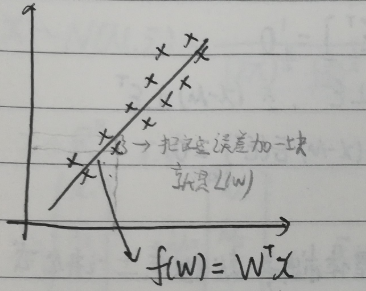 → 把这些误差加一块
就是L(w)
f(W) = Wᵀx